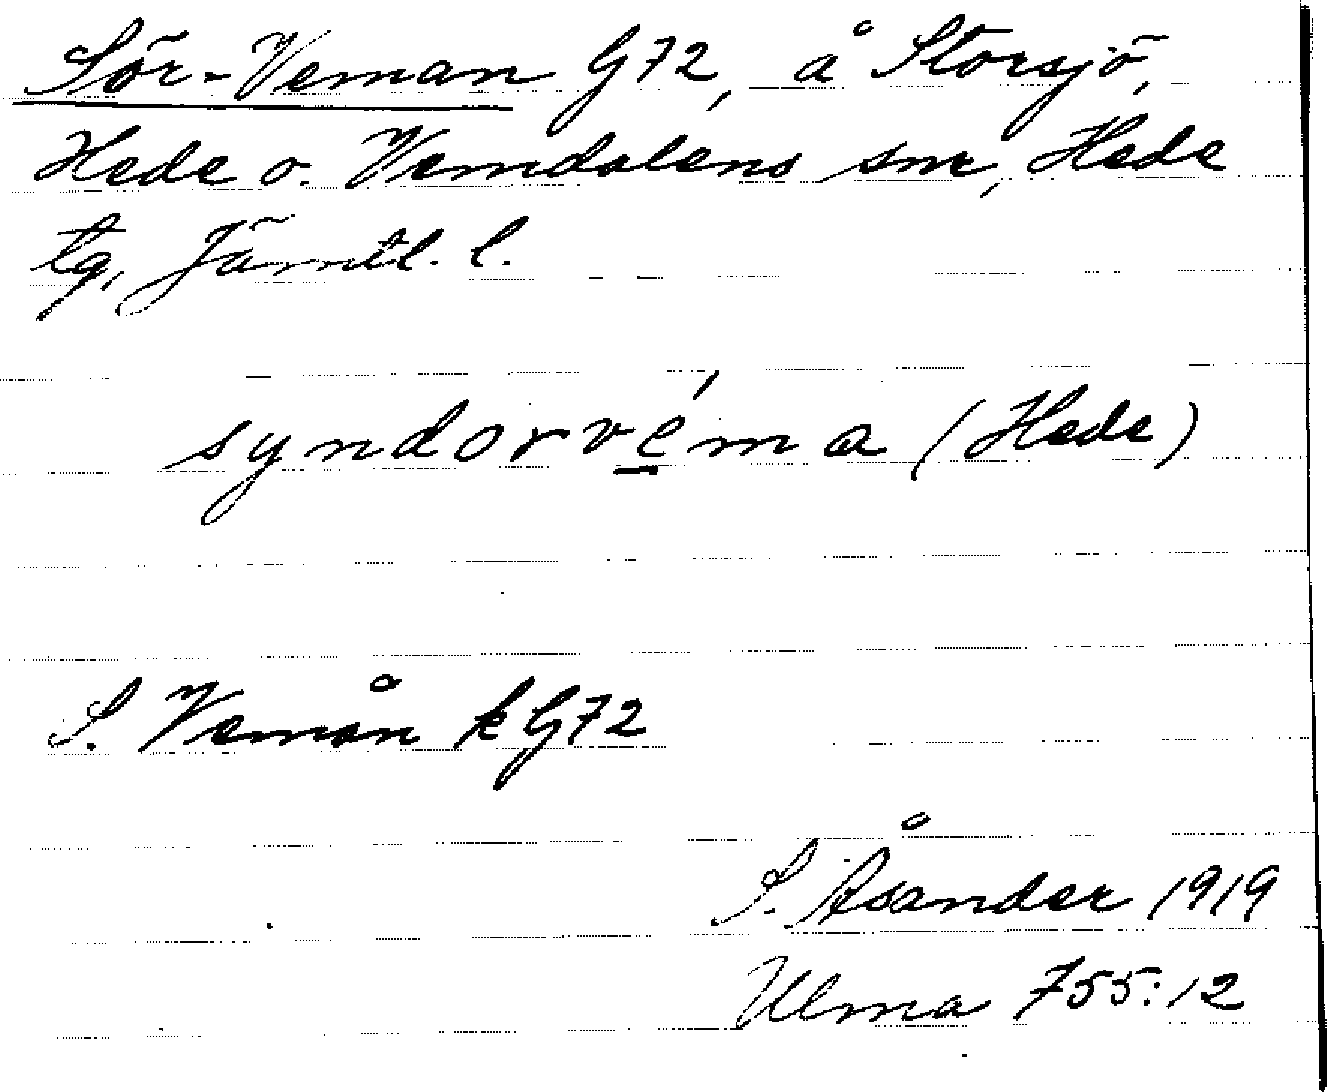 Sör-Veman G72, å Storsjö,
Hede o. Vemdalens snr, Hede
tg, Jämtl. l.
syndorvéma (Hede)
S. Vemån k G72
S. Åsander 1919
Ulma 755:12